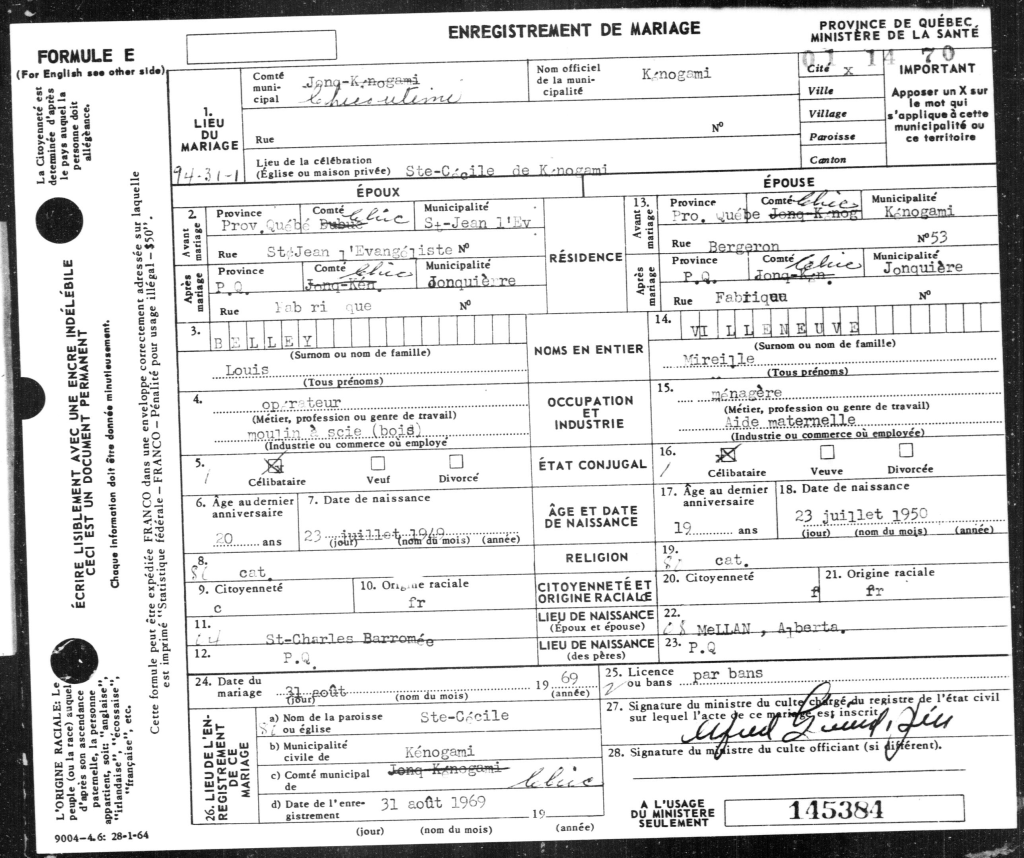 FORMULE E
(For English see other side)
ENREGISTREMENT DE MARIAGE
PROVINCE DE QUÉBEC,
MINISTÈRE DE LA SANTÉ
01 14 70
La Citoyenneté est
déterminée d'après
le pays auquel la
personne doit
allégeance.
ÉCRIRE LISIBLEMENT AVEC UNE ENCRE INDÉLÉBILE
CECI EST UN DOCUMENT PERMANENT
Chaque information doit être donnée minutieusement.
L'ORIGINE RACIALE: Le
peuple (ou la race) auquel
d'après son ascendance
paternelle, la personne
appartient, soit: "anglaise",
"irlandaise", "écossaise",
"française", etc.
Cette formule peut être expédiée FRANCO dans une enveloppe correctement adressée sur laquelle
est imprimé "Statistique fédérale – FRANCO – Pénalité pour usage illégal – $50".
1.
LIEU
DU
MARIAGE
94-31-1
Comté
muni-
cipal
Jonq-Kénogami
Chicoutimi
Nom officiel
de la muni-
cipalité
Kénogami
Cité x
Ville
Village
Paroisse
Canton
IMPORTANT
Apposer un X sur
le mot qui
s'applique à cette
municipalité ou
ce territoire
Rue
Nº
Lieu de la célébration
(Église ou maison privée) Ste-Cécile de Kénogami
ÉPOUX
ÉPOUSE
2. Avant mariage
Province Comté Chic Municipalité
Prov.Québé Dubuc St-Jean l'Ev
Rue St-Jean l'Evangéliste Nº
Après mariage
Province Comté Chic Municipalité
P.Q. Jonq-Kén. Jonquière
Rue Fabri que Nº
RÉSIDENCE
13. Avant mariage
Province Comté Chic Municipalité
Pro. Québe Jonq-Kénog Kénogami
Rue Bergeron Nº 53
Après mariage
Province Comté Chic Municipalité
P.Q. Jonq-Kén. Jonquière
Rue Fabrique Nº
3. BELLEY
(Surnom ou nom de famille)
Louis
(Tous prénoms)
NOMS EN ENTIER
14. VILLENEUVE
(Surnom ou nom de famille)
Mireille
(Tous prénoms)
4. opérateur
(Métier, profession ou genre de travail)
moulin à scie (bois)
(Industrie ou commerce où employé
OCCUPATION
ET
INDUSTRIE
15. ménagère
(Métier, profession ou genre de travail)
Aide maternelle
(Industrie ou commerce où employée)
5. 1 X
Célibataire Veuf Divorcé
ÉTAT CONJUGAL
16. 1 X
Célibataire Veuve Divorcée
6. Âge au dernier
anniversaire
20 ans
7. Date de naissance
23 juillet 1949
(jour) (nom du mois) (année)
ÂGE ET DATE
DE NAISSANCE
17. Âge au dernier
anniversaire
19 ans
18. Date de naissance
23 juillet 1950
(jour) (nom du mois) (année)
8. cat.
RELIGION
19. cat.
9. Citoyenneté
c
10. Origine raciale
fr
CITOYENNETÉ ET
ORIGINE RACIALE
20. Citoyenneté
f
21. Origine raciale
fr
11. St-Charles Barromée
LIEU DE NAISSANCE
(Époux et épouse)
22. MeLLAN , Alberta.
12. P.Q.
LIEU DE NAISSANCE
(des pères)
23. P.Q
24. Date du
mariage 31 août 19 69
(nom du mois) (année)
25. Licence
ou bans par bans
26. LIEU DE L'EN-
REGISTREMENT
DE CE
MARIAGE
a) Nom de la paroisse
ou église Ste-Cécile
b) Municipalité
civile de Kénogami
c) Comté municipal
de Jonq Kénogami Chic
d) Date de l'enre-
gistrement 31 août 1969 19
(jour) (nom du mois) (année)
27. Signature du ministre du culte chargé du registre de l'état civil
sur lequel l'acte de ce mariage est inscrit
Alfred
28. Signature du ministre du culte officiant (si différent).
A L'USAGE
DU MINISTÈRE
SEULEMENT
145384
9004-4.6: 28-1-64